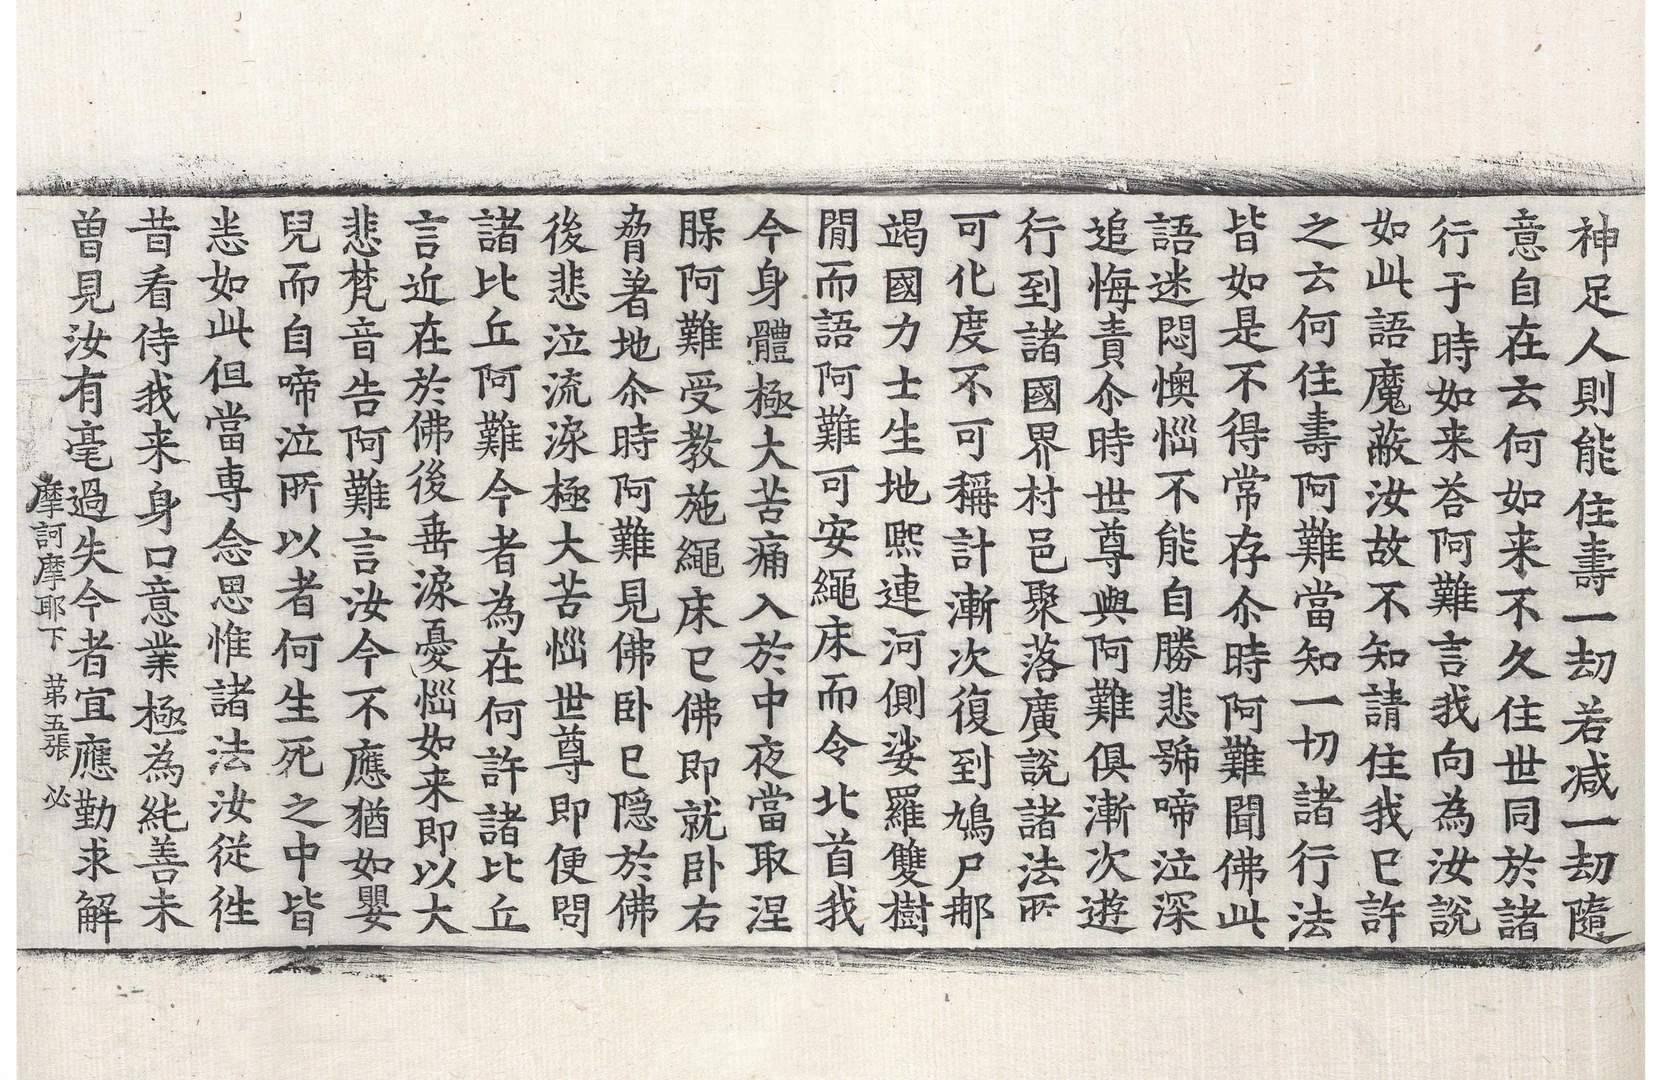 神足人則能住壽一劫若減一劫隨
意自在云何如来不久住世同於諸
行于時如来荅阿難言我向為汝說
如此語魔蔽汝故不知請住我已許
之云何住壽阿難當知一切諸行法
皆如是不得常存尒時阿難聞佛此
語迷悶懊惱不能自勝悲號啼泣深
追悔責尒時世尊與阿難俱漸次遊
行到諸國界村邑聚落廣說諸法所
可化度不可稱計漸次復到鳩尸那
竭國力士生地熈連河側娑羅雙樹
間而語阿難可安繩床而令北首我
今身體極大苦痛入於中夜當取涅
腂阿難受教施繩床已佛即就卧右
脅著地尒時阿難見佛卧已隱於佛
後悲泣流淚極大苦惱世尊即便問
諸比丘阿難今者為在何許諸比丘
言近在於佛後垂淚憂惱如来即以大
悲梵音告阿難言汝今不應猶如嬰
兒而自啼泣所以者何生死之中皆
恙如此但當專念思惟諸法汝從徃
昔看侍我来身口意業極為純善未
曽見汝有毫過失今者宜應勤求解
摩訶摩耶下　第五張　必